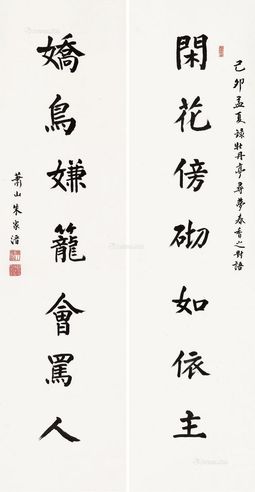 己卯孟夏録牡丹亭尋夢春香之對語
閑花傍砌如依主
嬌鳥嫌籠會罵人
蕭山朱家溍